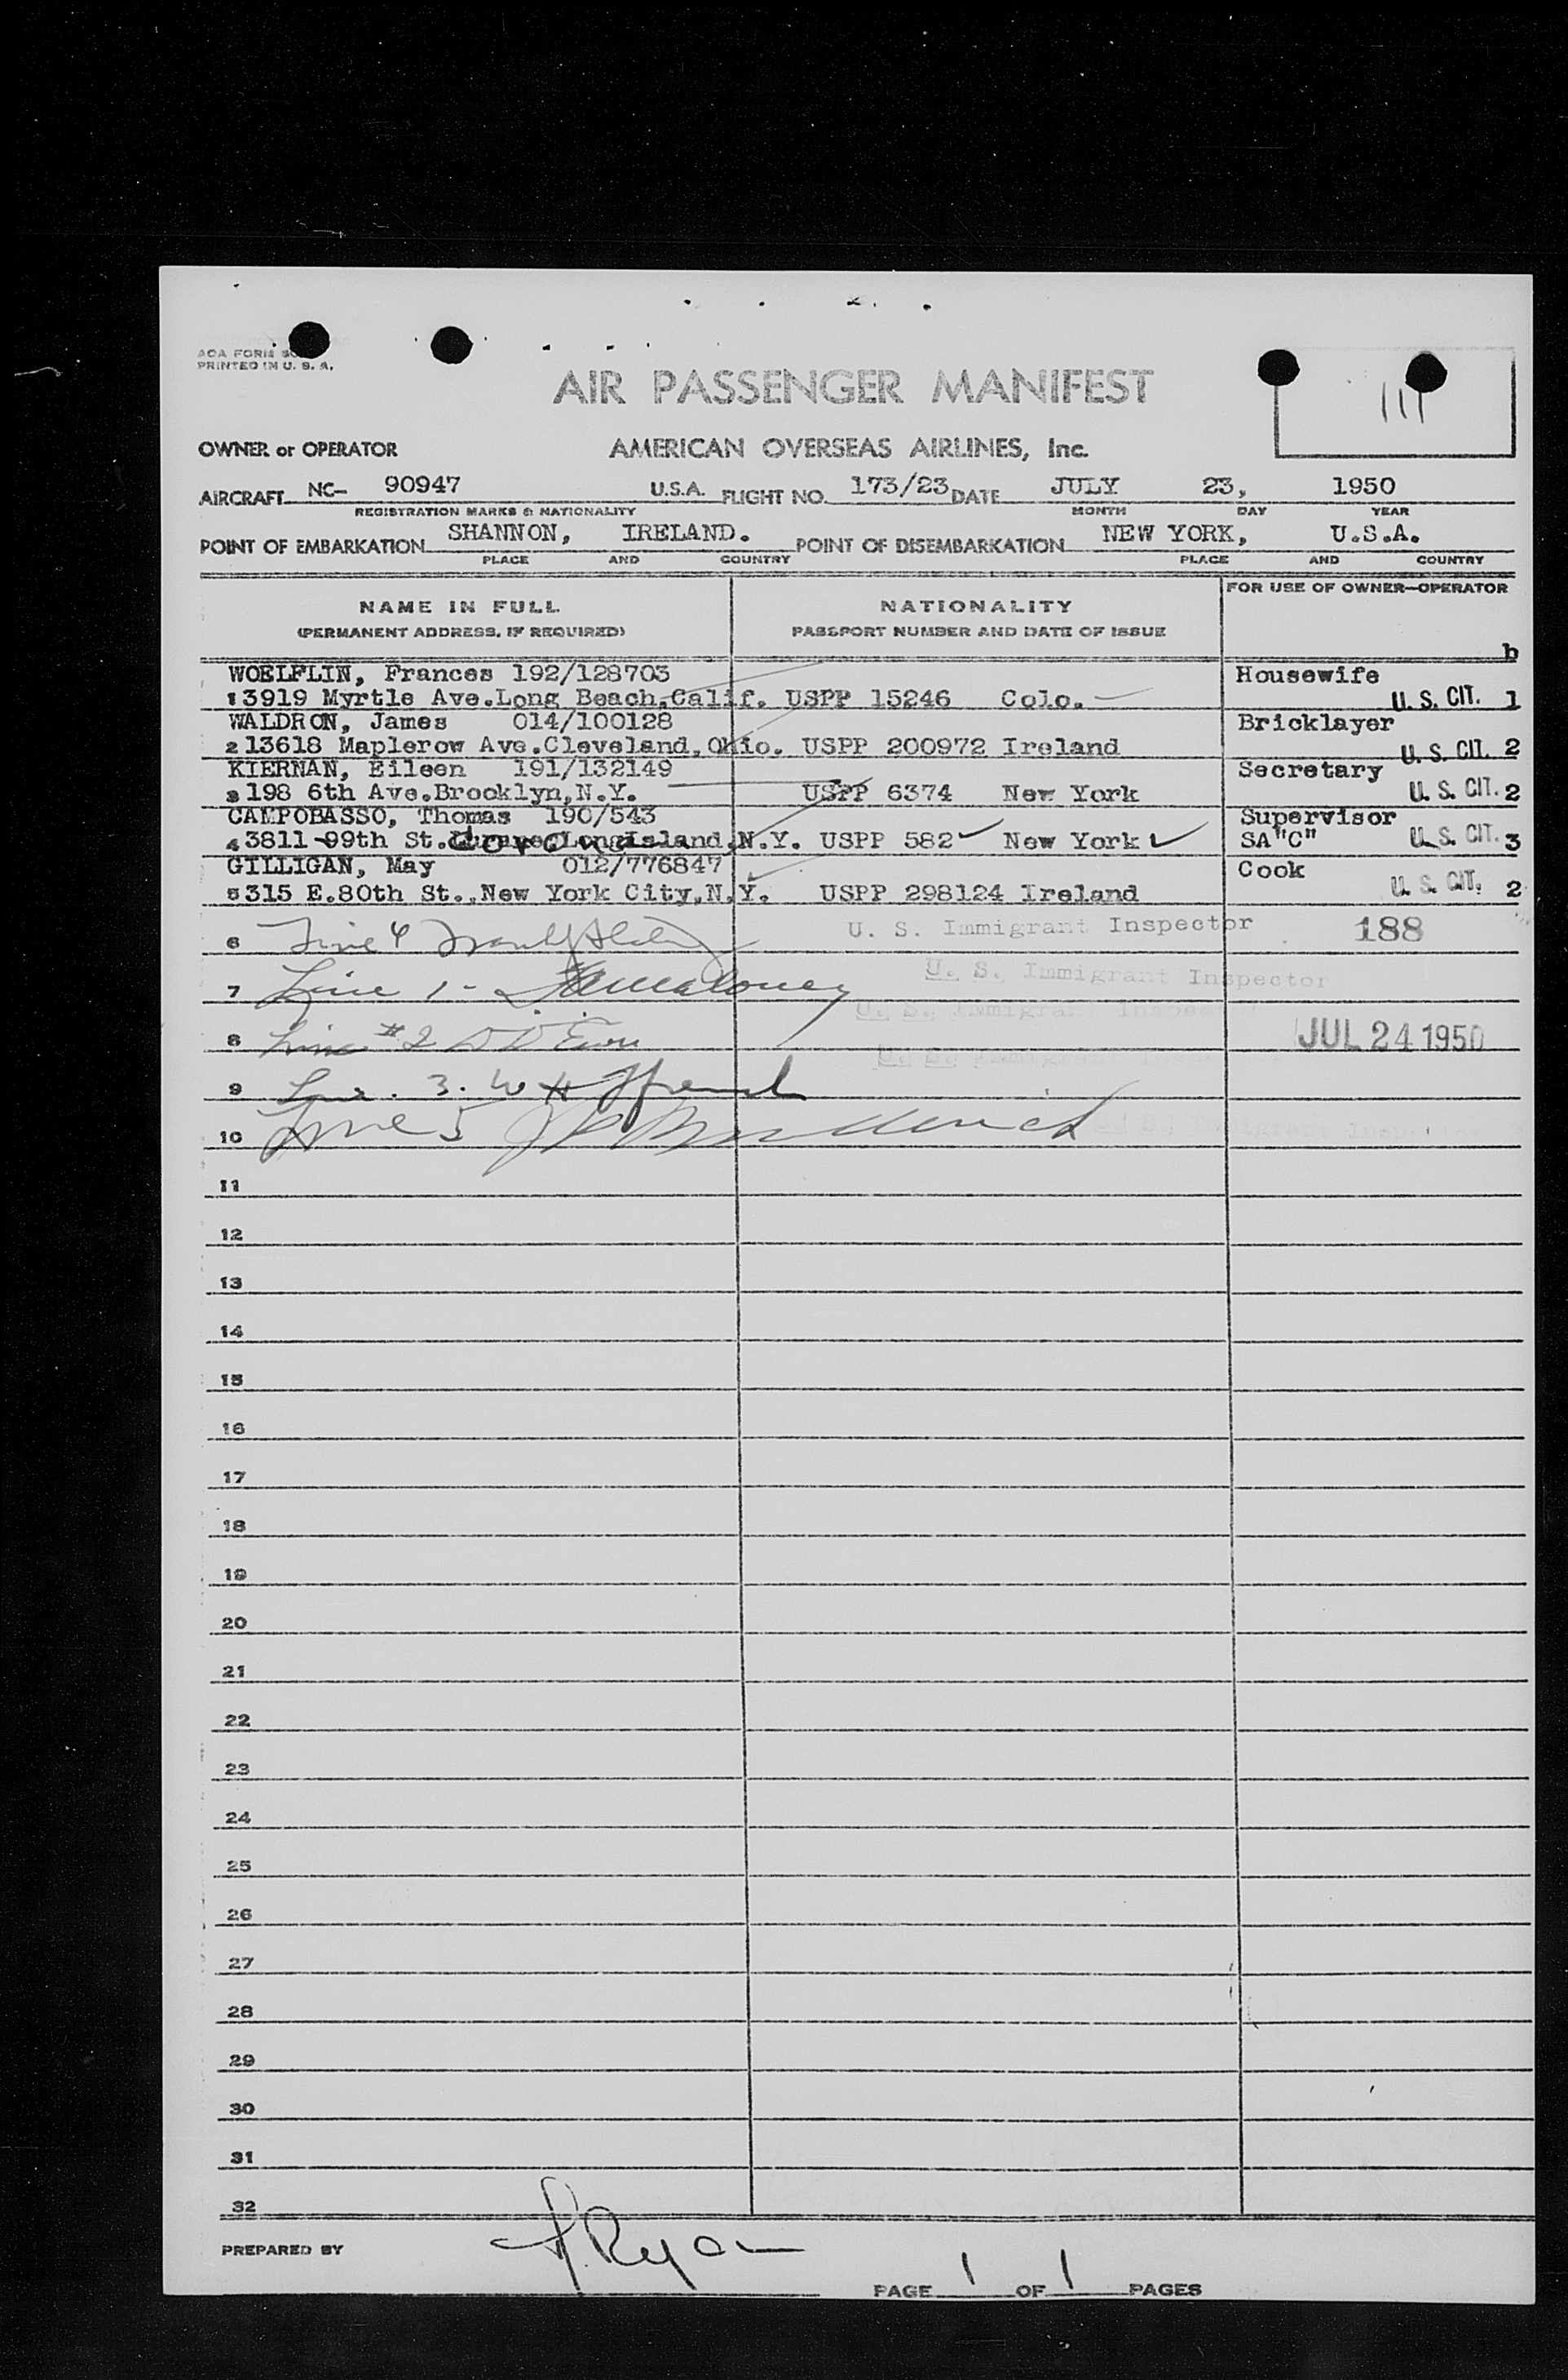 AOA FORM
PRINTED IN U. S. A.
111
AIR PASSENGER MANIFEST
OWNER or OPERATOR AMERICAN OVERSEAS AIRLINES, Inc.
AIRCRAFT NC- 90947 U.S.A. FLIGHT NO. 173/23 DATE JULY 23, 1950
REGISTRATION MARKS & NATIONALITY MONTH DAY YEAR
POINT OF EMBARKATION SHANNON, IRELAND. POINT OF DISEMBARKATION NEW YORK, U.S.A.
PLACE AND COUNTRY PLACE AND COUNTRY
NAME IN FULL NATIONALITY FOR USE OF OWNER-OPERATOR
(PERMANENT ADDRESS, IF REQUIRED) PASSPORT NUMBER AND DATE OF ISSUE
b
WOELFLIN, Frances 192/128703 Housewife
1 3919 Myrtle Ave.Long Beach,Calif. USPP 15246 Colo. U. S. CIT. 1
WALDRON, James 014/100128 Bricklayer
2 13618 Maplerow Ave.Cleveland,Ohio. USPP 200972 Ireland U. S. CIT. 2
KIERNAN, Eileen 191/132149 Secretary
3 198 6th Ave.Brooklyn,N.Y. USPP 6374 New York U. S. CIT. 2
CAMPOBASSO, Thomas 190/543 Supervisor
4 3811-99th St. Corona LongIsland,N.Y. USPP 582 New York SA"C" U. S. CIT. 3
GILLIGAN, May 012/776847 Cook
5 315 E.80th St.,New York City,N.Y. USPP 298124 Ireland U. S. CIT. 2
6 Line 4 U. S. Immigrant Inspector 188
7 Line 1- Maloney U. S. Immigrant Inspector
U. S. Immigrant Inspector
8 Line #2 JUL 24 1950
U. S. Immigrant
9 Line. 3. W H French
10 Line 5
11
12
13
14
15
16
17
18
19
20
21
22
23
24
25
26
27
28
29
30
31
32
PREPARED BY Ryan
PAGE 1 OF 1 PAGES